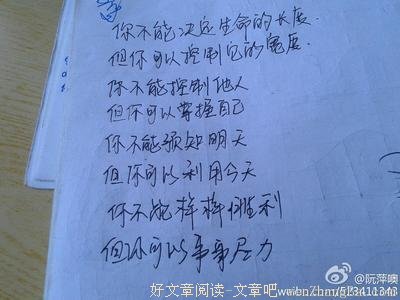 你不能决定生命的长度.
但你可以控制它的宽度.
你不能控制他人
但你可以掌握自己
你不能预知明天
但你可以利用今天
你不能样样胜利
但你可以事事尽力
@阮萍噢
好文章阅读-文章吧